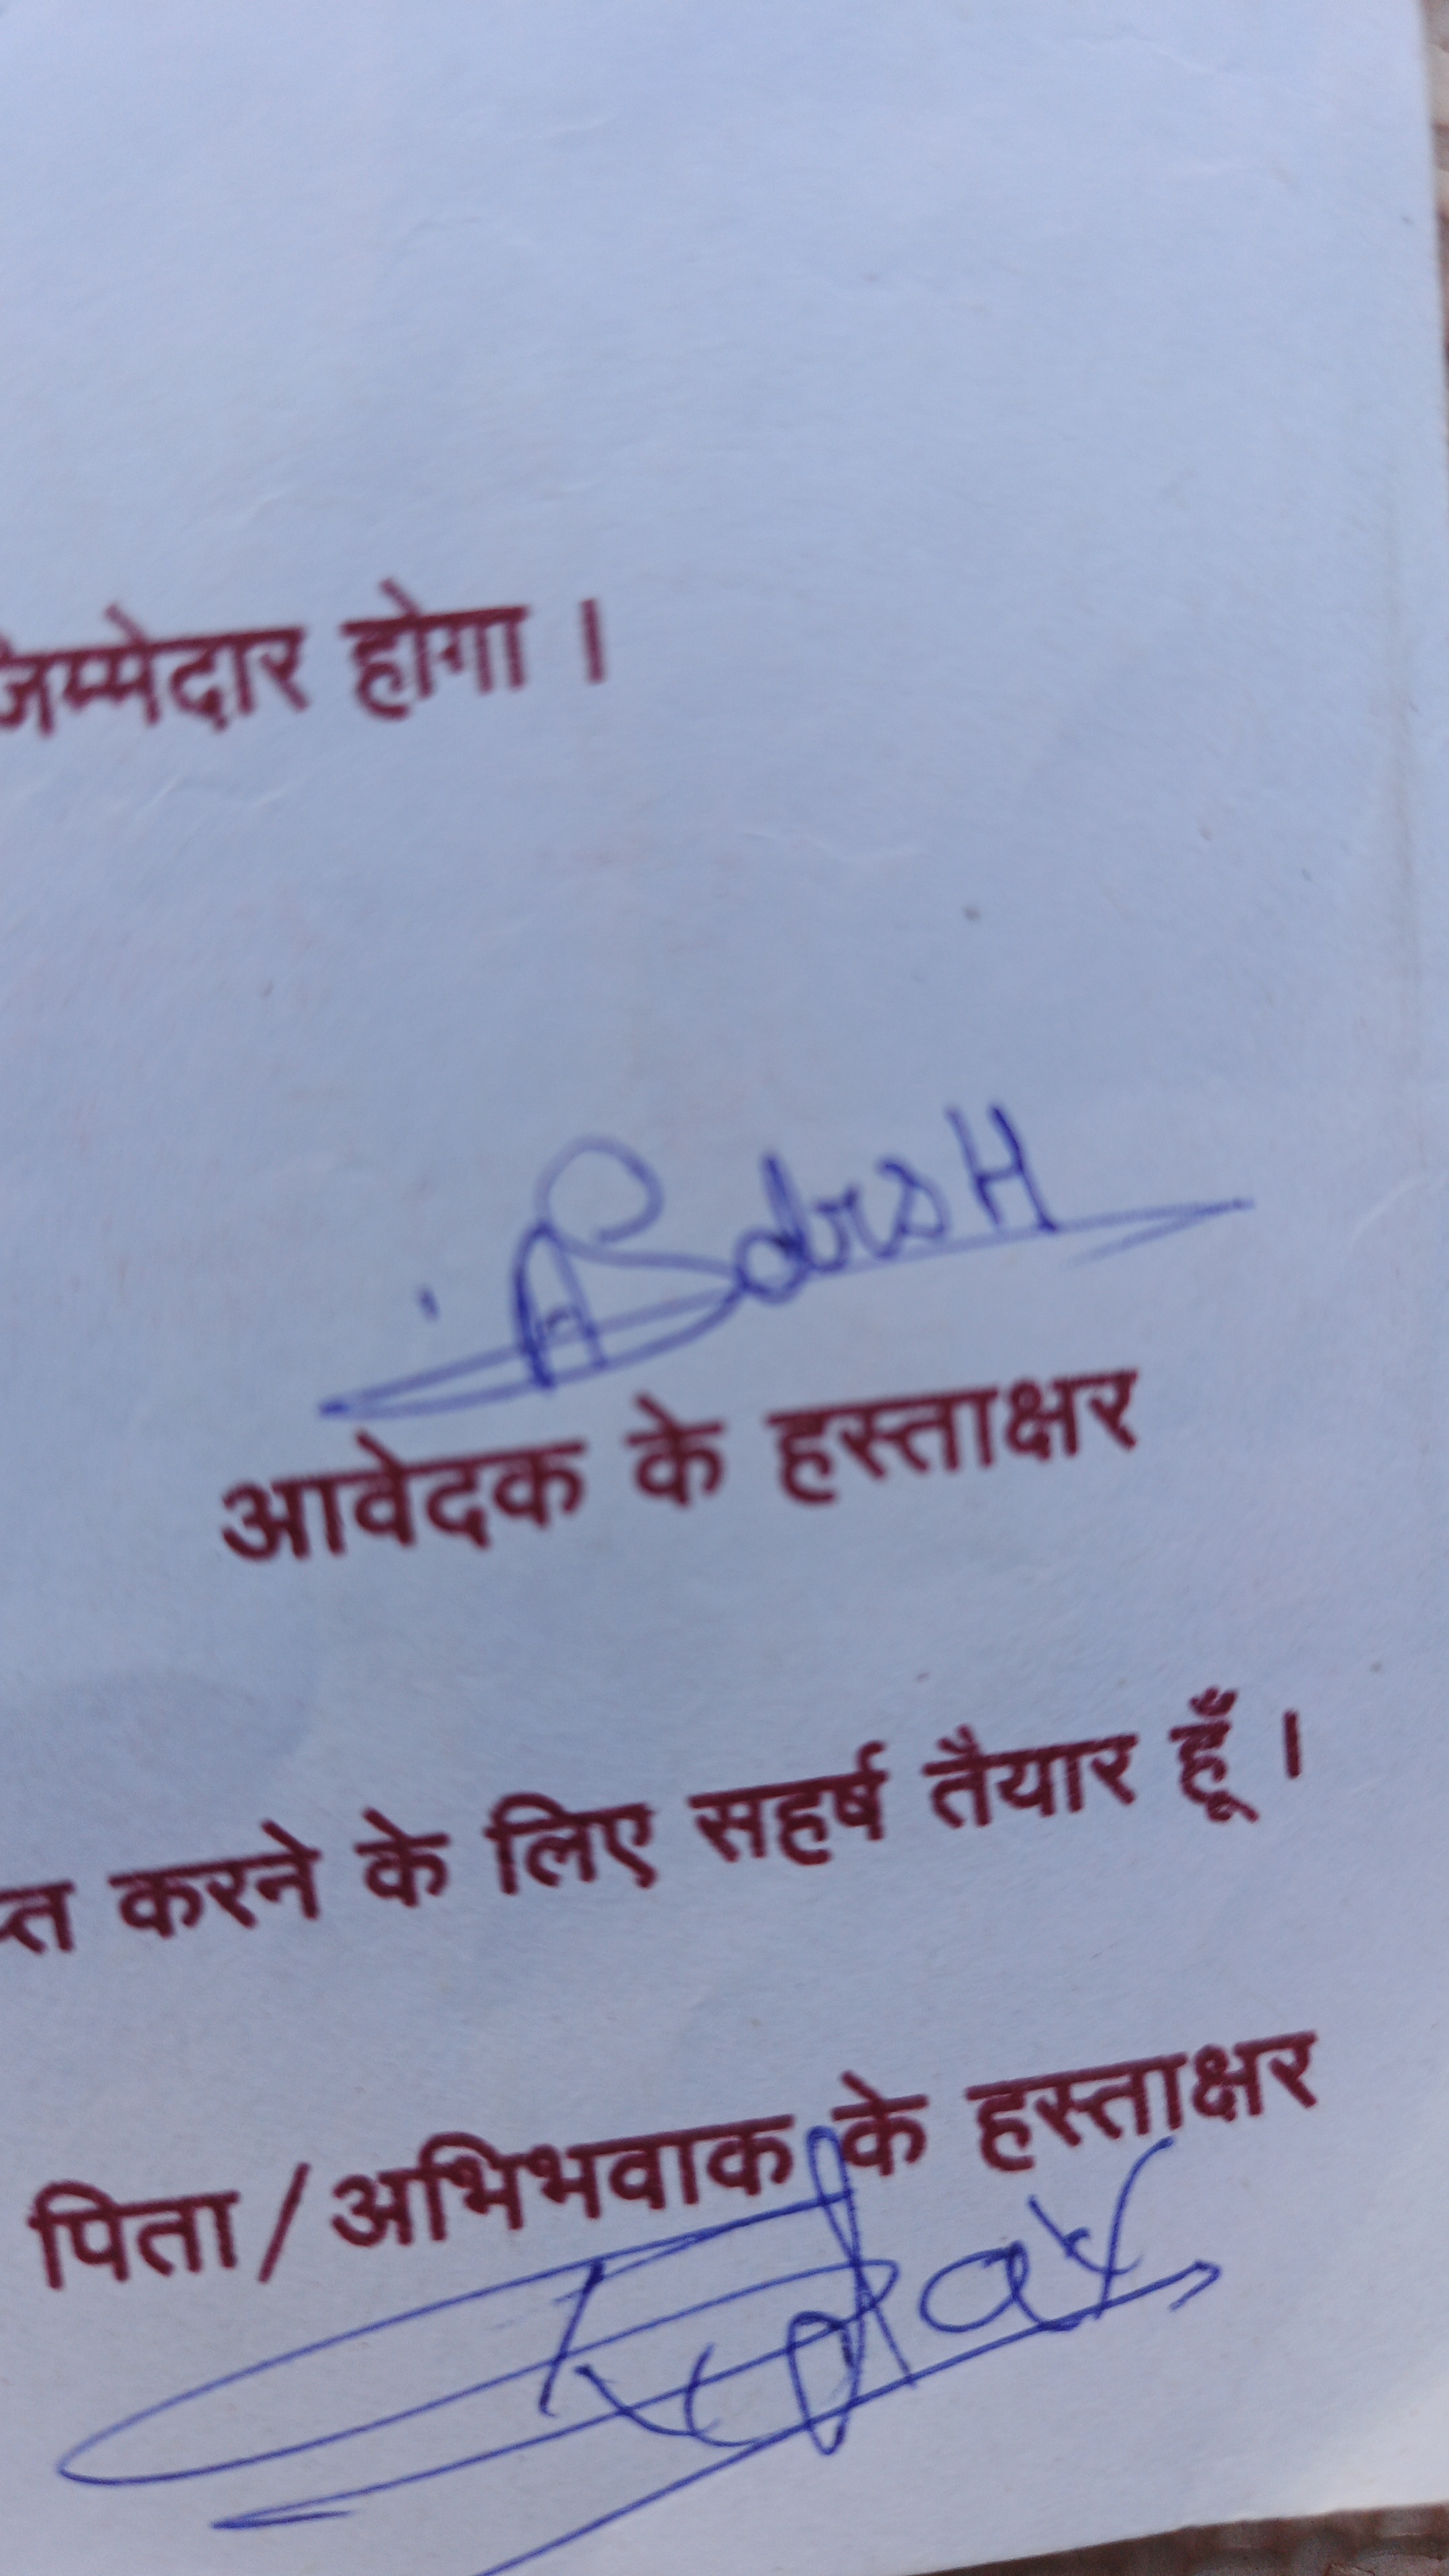 जिम्मेदार होगा ।
आवेदक के हस्ताक्षर
प्त करने के लिए सहर्ष तैयार हूँ ।
पिता/अभिभवाक के हस्ताक्षर